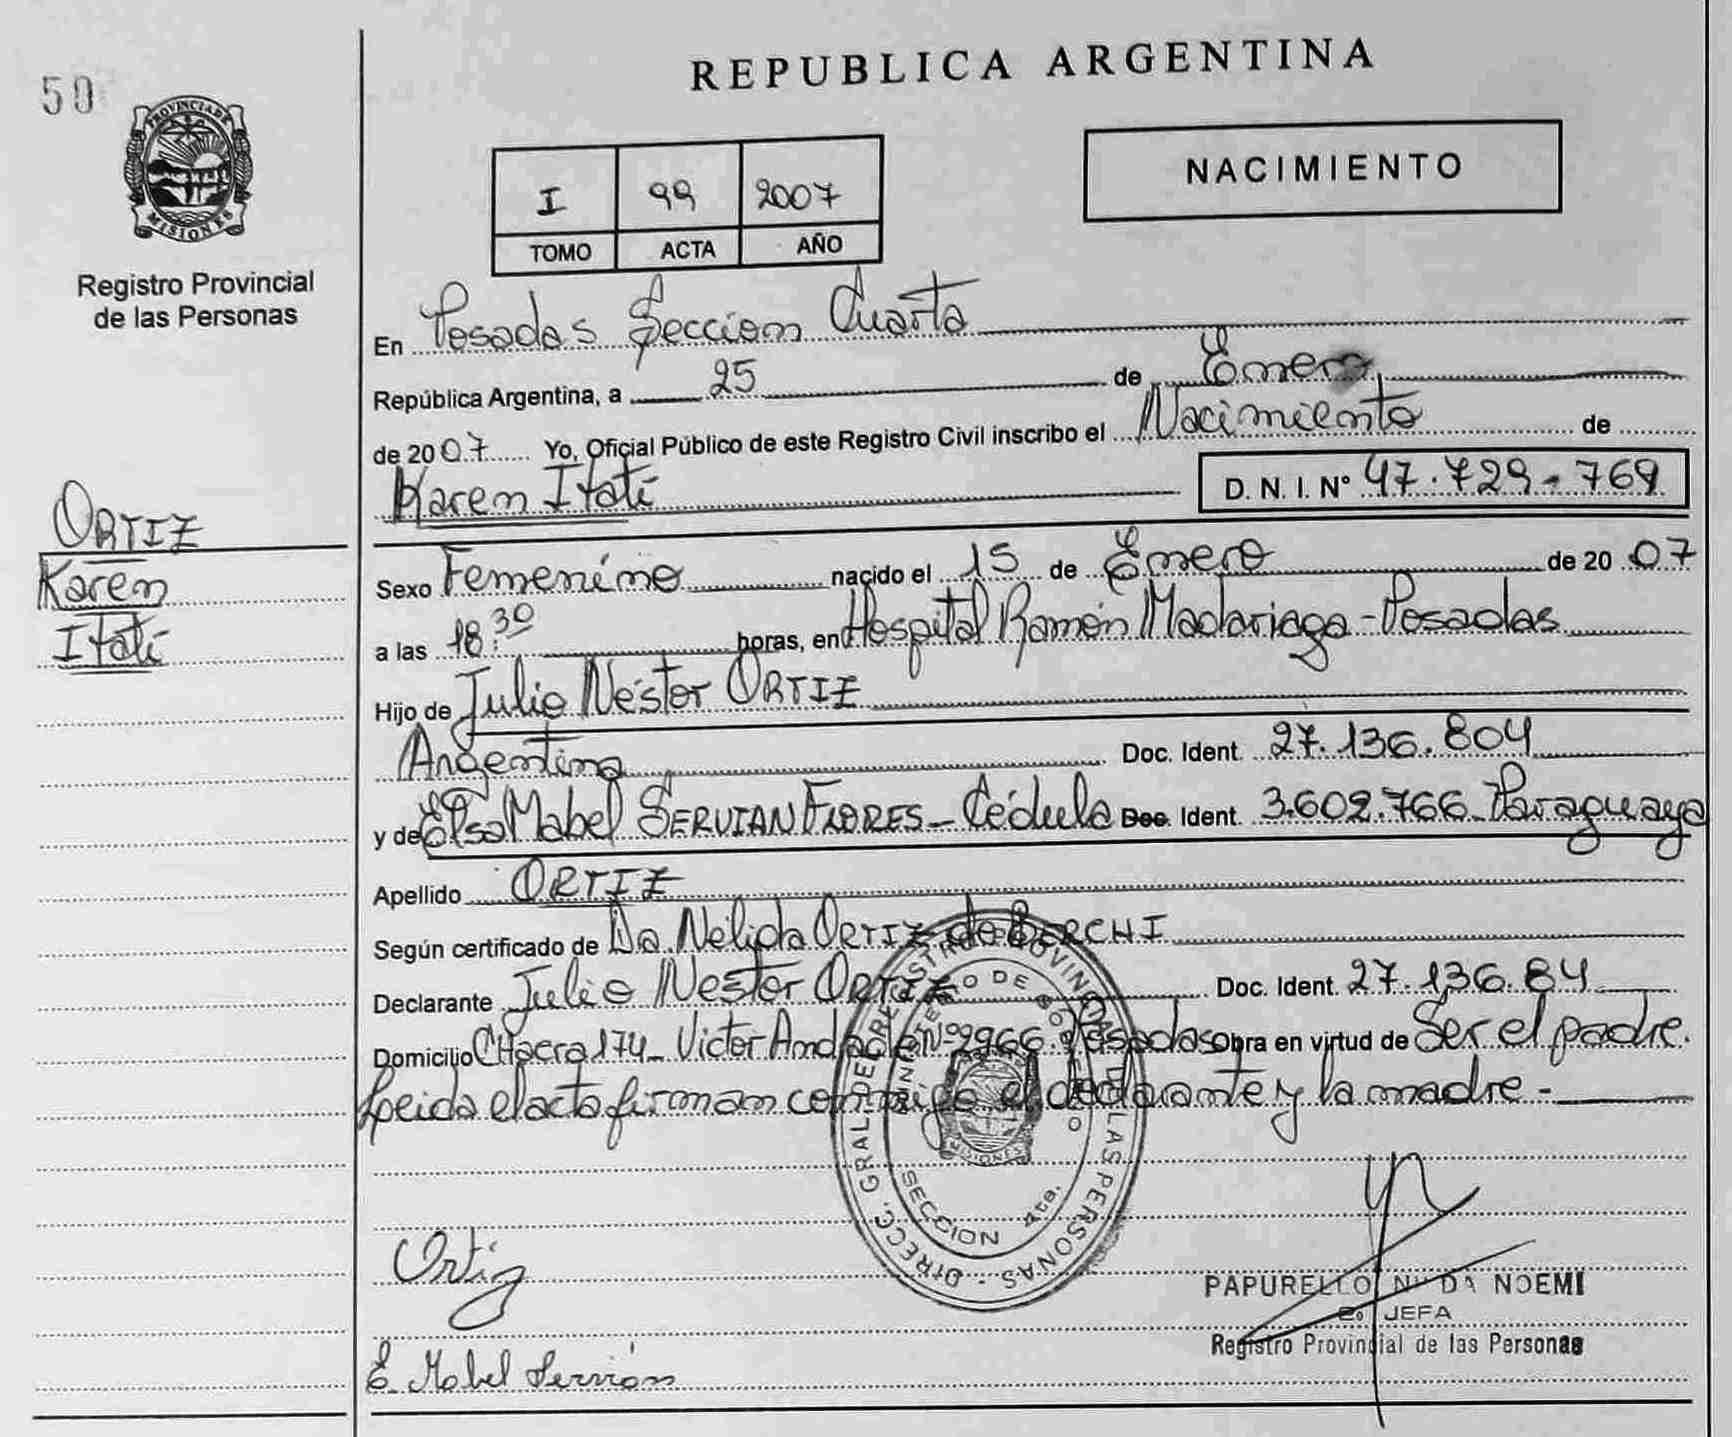 50
PROVINCIA DE
MISIONES
Registro Provincial
de las Personas
ORTIZ
Karen
Itatí
REPUBLICA ARGENTINA
NACIMIENTO
I 99 2007
TOMO ACTA AÑO
En Posadas Seccion Cuarta
República Argentina, a 25 de Enero
de 2007 Yo, Oficial Público de este Registro Civil inscribo el Nacimiento de
Karen Itatí D. N. I. N° 47.729.769
Sexo Femenino nacido el 15 de Enero de 2007
a las 18:30 horas, en Hospital Ramón Madariaga - Posadas
Hijo de Julio Néstor ORTIZ
Argentino Doc. Ident. 27.136.804
y de Elsa Mabel SERVIAN FLORES - Cédula Doc. Ident. 3.602.766 Paraguaya
Apellido ORTIZ
Según certificado de Da. Nelida ORTIZ de BERCHI
Declarante Julio Nestor ORTIZ Doc. Ident. 27.136.84
Domicilio CHacra 174 - Victor Andrade N° 2966 Posadas Obra en virtud de Ser el padre.
Leida el acta firman conmigo el declarante y la madre -
DIRECC. GRAL DE REGISTRO PROVINCIAL DE LAS PERSONAS
MINISTERIO DE GOBIERNO
MISIONES
SECCION 4ta.
Ortiz
E. Mabel Servián
PAPURELLO NOEMI
JEFA
Registro Provincial de las Personas